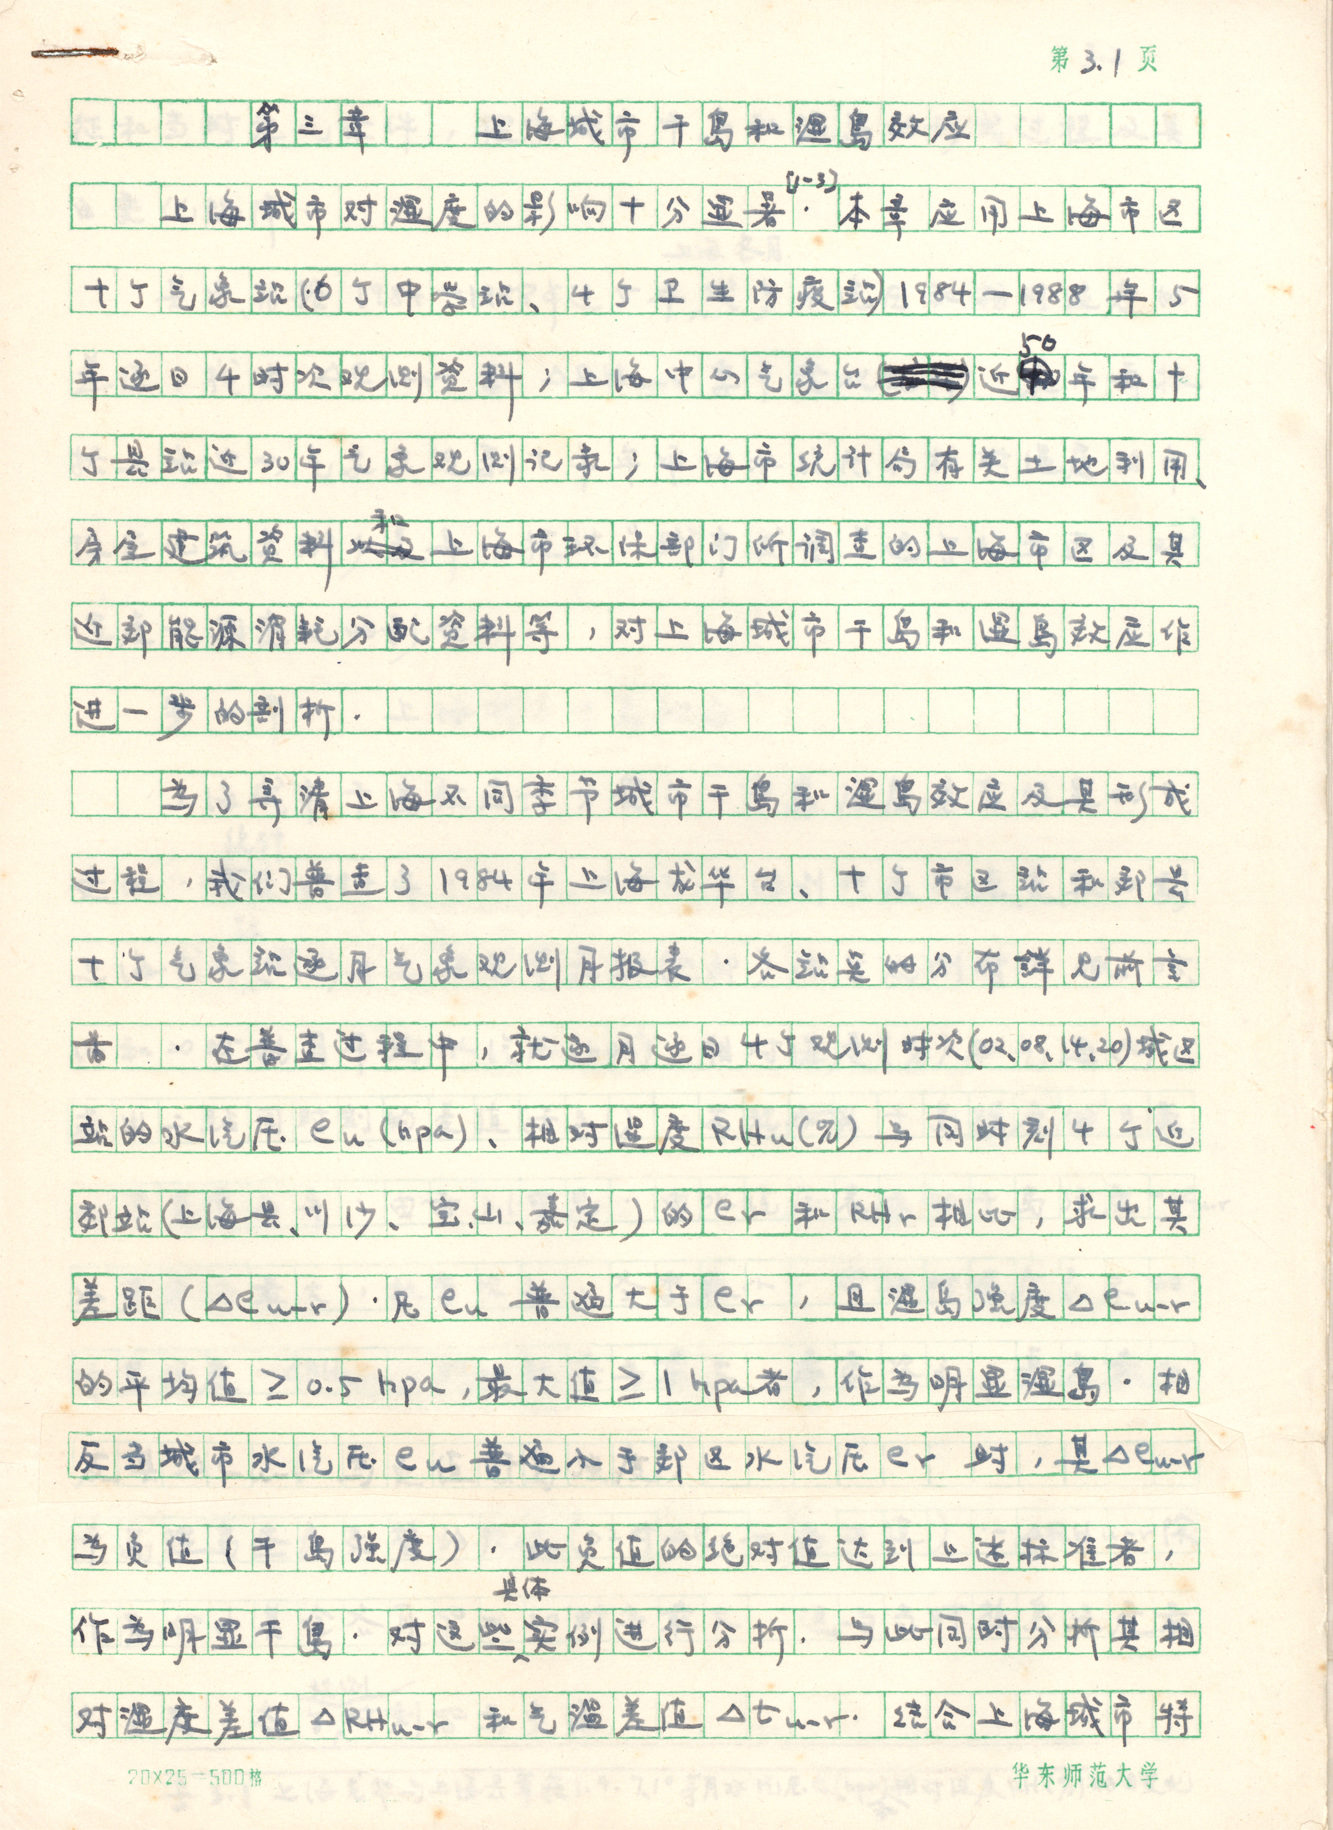 第3.1页
第三章 上海城市干岛和湿岛效应
上海城市对湿度的影响十分显著[1-3].本章应用上海市区
十个气象站(6个中学站、4个卫生防疫站)1984—1988年5
年逐日4时次观测资料；上海中心气象台近50年和十
个县站近30年气象观测记录；上海市统计局有关土地利用、
房屋建筑资料和上海市环保部门所调查的上海市区及其
近郊能源消耗分配资料等，对上海城市干岛和湿岛效应作
进一步的剖析.
为了弄清上海不同季节城市干岛和湿岛效应及其形成
过程，我们普查了1984年上海龙华台、十个市区站和郊县
十个气象站逐月气象观测月报表.各站点的分布詳见前言
.在普查过程中，就逐月逐日4个观测时次(02、08、14、20)城区
站的水汽压eu(hpa)、相对湿度RHu(%)与同时刻4个近
郊站(上海县、川沙、宝山、嘉定)的er和RHr相比，求出其
差距(△eu-r).凡eu普遍大于er，且湿岛强度△eu-r
的平均值≥0.5hpa，最大值≥1hpa者，作为明显湿岛.相
反当城市水汽压eu普遍小于郊区水汽压er时，其△eu-r
为负值(干岛强度).此负值的绝对值达到上述标准者，
作为明显干岛.对这些具体实例进行分析.与此同时分析其相
对湿度差值△RHu-r和气温差值△tu-r.结合上海城市特
20×25=500格
华东师范大学